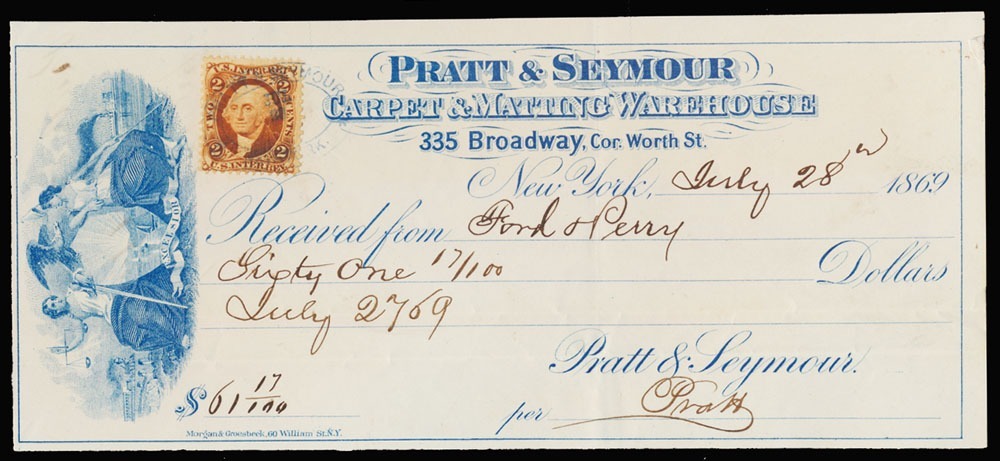 PRATT & SEYMOUR
CARPET & MATTING WAREHOUSE
335 Broadway, Cor. Worth St.
U.S. INTER. REV.
2 2
TWO CENTS
2 2
U.S. INTER. REV.
EXCELSIOR
New York, July 28 1869
Received from Ford & Perry
Sixty One 17/100 Dollars
July 2 69
Pratt & Seymour.
$ 61 17/100
per Pratt
Morgan & Groesbeek, 60 William St. N.Y.